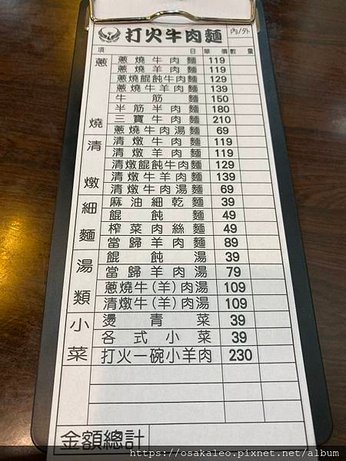 打火牛肉麵 內/外
項 目 單價 數量
蔥燒
蔥燒牛肉麵 119
蔥燒羊肉麵 119
蔥燒餛飩牛肉麵 129
蔥燒牛羊肉麵 139
牛筋麵 150
半筋半肉麵 180
三寶牛肉麵 210
蔥燒牛肉湯麵 69
清燉
清燉牛肉麵 119
清燉羊肉麵 119
清燉餛飩牛肉麵 129
清燉牛羊肉麵 139
清燉牛肉湯麵 69
細麵
麻油細乾麵 39
餛飩麵 49
榨菜肉絲麵 49
當歸羊肉麵 89
湯類
餛飩湯 39
當歸羊肉湯 79
蔥燒牛(羊)肉湯 109
清燉牛(羊)肉湯 109
小菜
燙青菜 39
各式小菜 39
打火一碗小羊肉 230
金額總計
https://osakaleo.pixnet.net/album